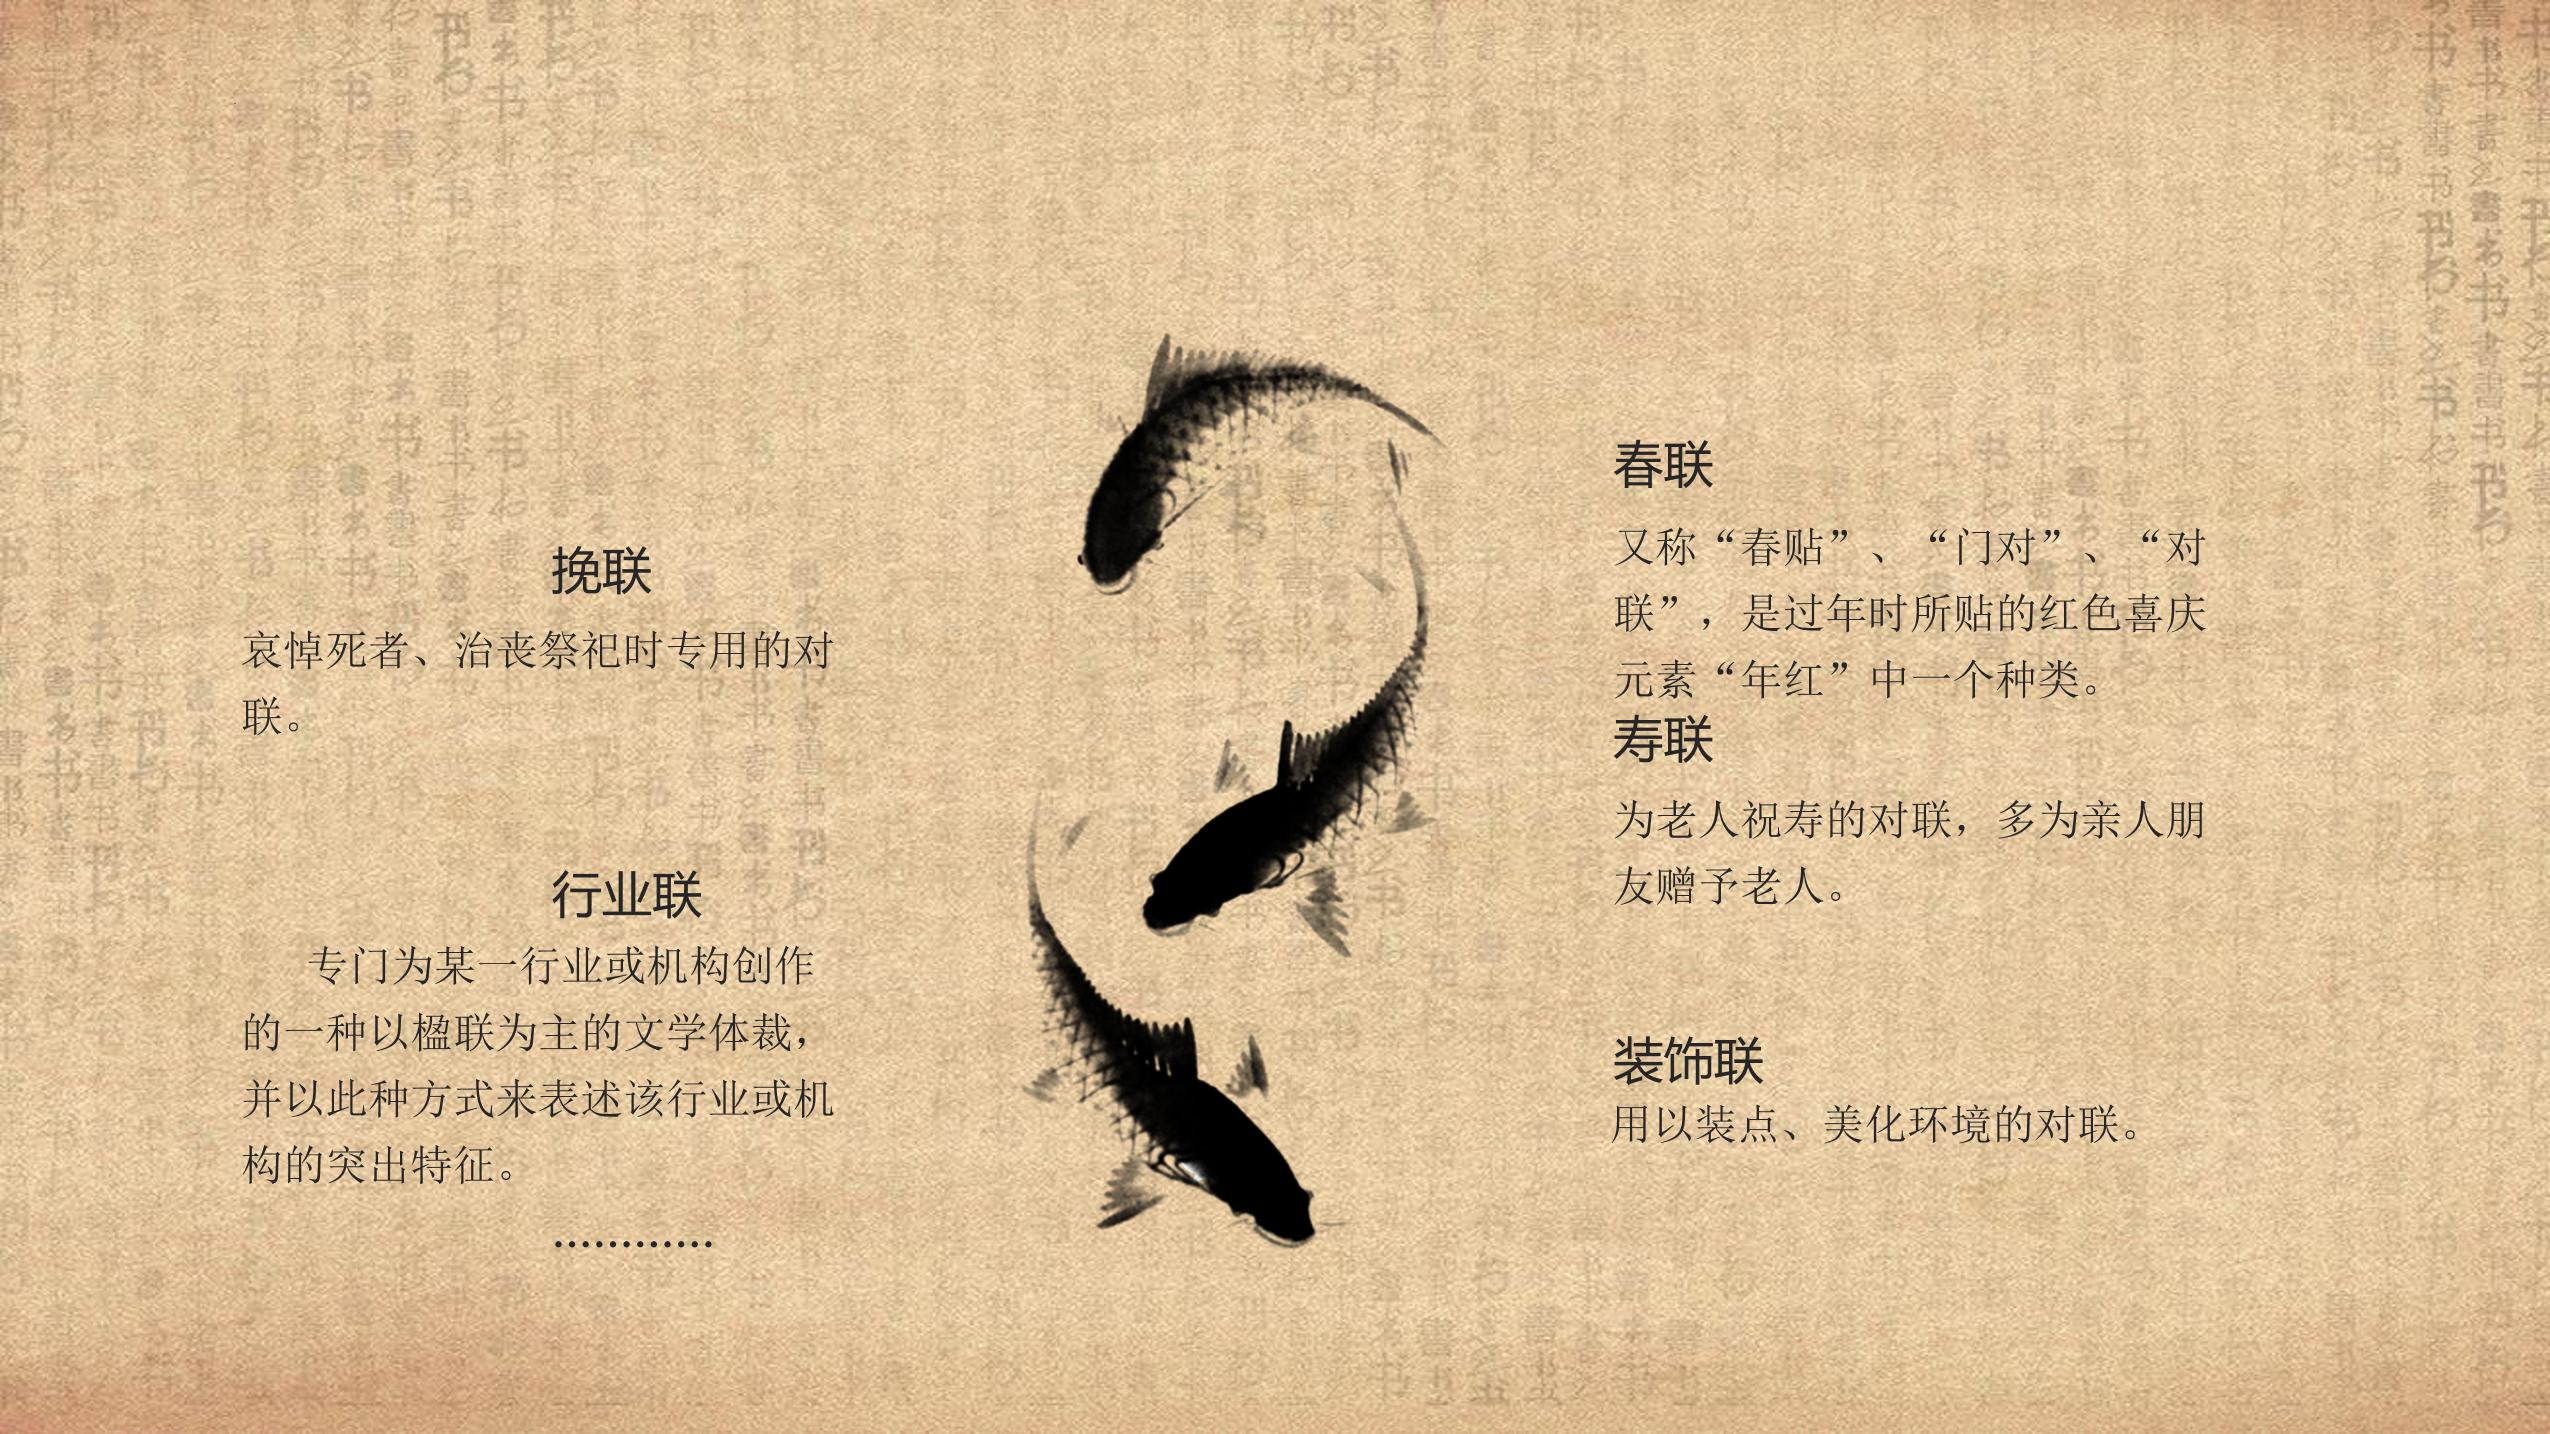 挽联
哀悼死者、治丧祭祀时专用的对
联。
行业联
专门为某一行业或机构创作
的一种以楹联为主的文学体裁，
并以此种方式来表述该行业或机
构的突出特征。
…………
春联
又称“春贴”、“门对”、“对
联”，是过年时所贴的红色喜庆
元素“年红”中一个种类。
寿联
为老人祝寿的对联，多为亲人朋
友赠予老人。
装饰联
用以装点、美化环境的对联。